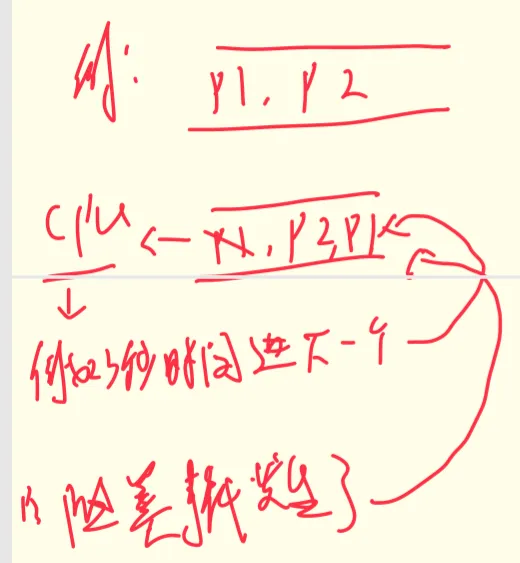 例: P1, P2
CPU ← P1, P2, P1
↓
例如3秒时间进下一个
发生了